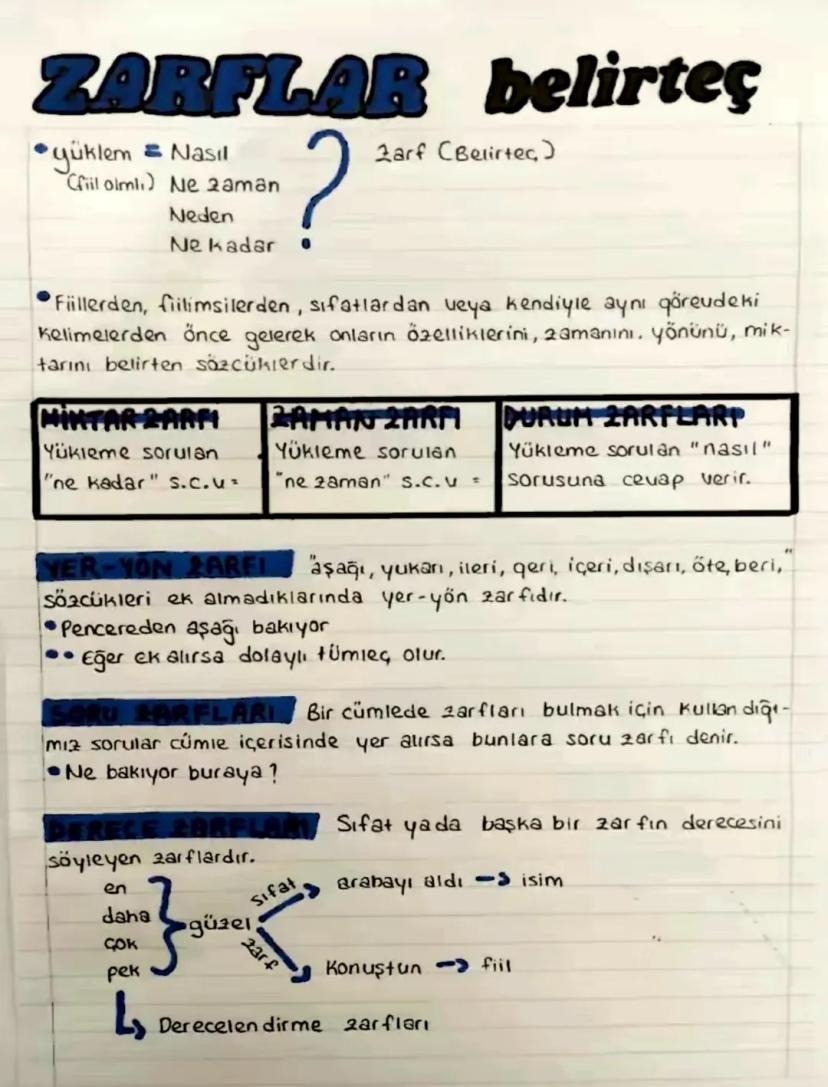 ZARFLAR belirteç
• yüklem = Nasıl ? Zarf (Belirteç)
(fiil olmlı) Ne zaman
Neden
Ne kadar
• Fiillerden, fiilimsilerden, sıfatlardan veya kendiyle aynı görevdeki
kelimelerden önce gelerek onların özelliklerini, zamanını, yönünü, mik-
tarını belirten sözcüklerdir.
MİKTAR ZARFI
Yükleme sorulan
"ne kadar" s.c.v =
ZAMAN ZARFI
Yükleme sorulan
"ne zaman" s.c.v =
DURUM ZARFLARI
Yükleme sorulan "nasıl"
sorusuna cevap verir.
YER-YÖN ZARFI "aşağı, yukarı, ileri, geri, içeri, dışarı, öte, beri,"
sözcükleri ek almadıklarında yer-yön zarfıdır.
• Pencereden aşağı bakıyor
•• Eğer ek alırsa dolaylı tümleç olur.
SORU ZARFLARI Bir cümlede zarfları bulmak için kullandığı-
mız sorular cümle içerisinde yer alırsa bunlara soru zarfı denir.
• Ne bakıyor buraya?
DERECE ZARFLARI Sıfat yada başka bir zarfın derecesini
söyleyen zarflardır.
en
daha
çok
pek
güzel
sıfat → arabayı aldı → isim
zarf → Konuştun → fiil
↳ Derecelendirme zarfları